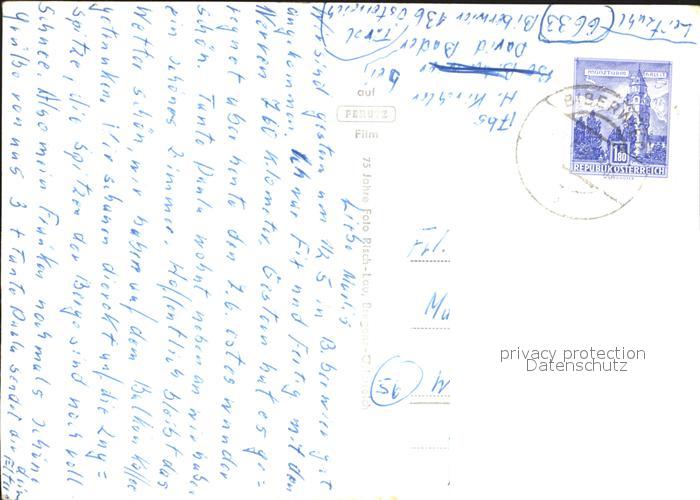 Leitzahl 6633 Biberwier 136 Österreich
Tirol
David Bader
bei
H. Kirchler
Abs
Liebe Murlis
Wir sind gestern um 11,5 in Biberwier gut
angekommen. Ich war Fix und Fertig mit den
Nerven 760 Kilometer. Gestern hat es ge=
regnet aber heute den 7.6. ist es wunder
schön. Tante Paula wohnt nebenan wir haben
ein schönes Zimmer. Hoffentlich bleibt das
Wetter schön, wir haben auf dem Balkon Kaffee
getrunken, wir schauen direkt auf die Zug=
Spitze, die Spitzen der Berge sind noch voll
Schnee. Also mein nochmals schöne
Grüße von uns 3 + Tante Paula sendet dir
auf
PERUTZ
Film
75 Jahre Foto Risch-Lau, Bregenz
BIBERWIER
MÜNZTURM HALL I.T.
1.80
REPUBLIK ÖSTERREICH
95
M
privacy protection
Datenschutz